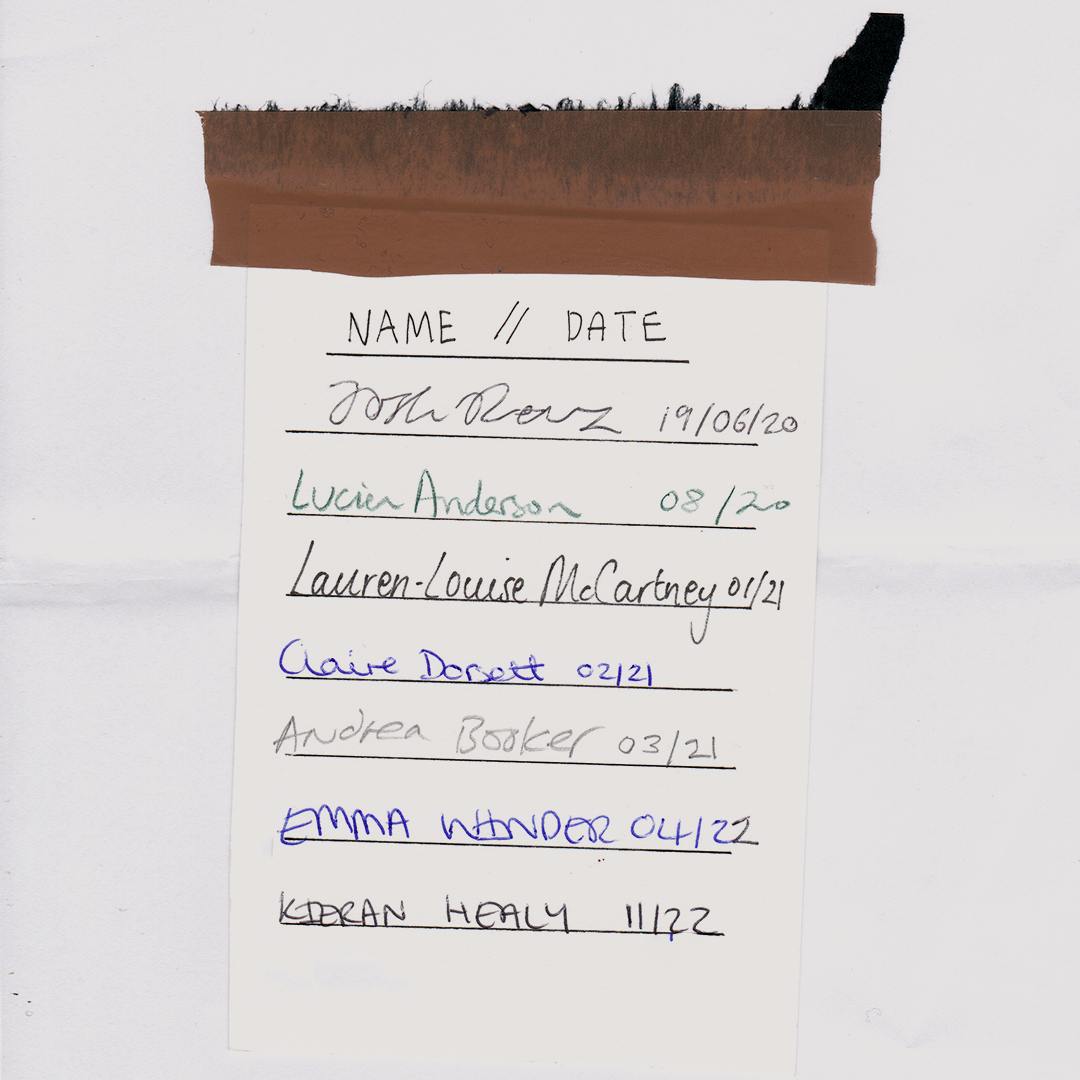 NAME // DATE
Josh Renz 19/06/20
Lucien Anderson 08/20
Lauren-Louise McCartney 01/21
Claire Dorsett 02/21
Andrea Booker 03/21
EMMA 04/22
KIERAN HEALY 11/22